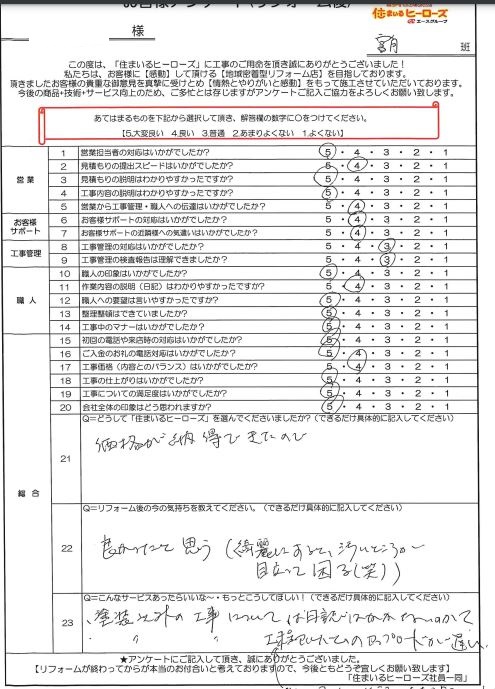 住まいるヒーローズ
エースグループ
様
班
この度は、「住まいるヒーローズ」に工事のご用命を頂き誠にありがとうございました！
私たちは、お客様に【感動】して頂ける【地域密着型リフォーム店】を目指しております。
頂きましたお客様の貴重な御意見を真摯に受けとめ【情熱とやりがいと感動】をもって施工させていただいております。
今後の商品+技術+サービス向上のため、ご多忙とは存じますがアンケートご記入ご協力をよろしくお願い致します。
あてはまるものを下記から選択して頂き、解答欄の数字に○をつけてください。
【5.大変良い 4.良い 3.普通 2.あまりよくない 1.よくない】
営業
1 営業担当者の対応はいかがでしたか? 5・4・3・2・1
2 見積もりの提出スピードはいかがでしたか? 5・4・3・2・1
3 見積もりの説明はわかりやすかったですか? 5・4・3・2・1
4 工事内容の説明はわかりやすかったですか? 5・4・3・2・1
5 営業から工事管理・職人への伝達はいかがでしたか? 5・4・3・2・1
お客様サポート
6 お客様サポートの対応はいかがでしたか? 5・4・3・2・1
7 お客様サポートの近隣様への気遣いはいかがでしたか? 5・4・3・2・1
工事管理
8 工事管理の対応はいかがでしたか? 5・4・3・2・1
9 工事管理の検査報告は理解できましたか? 5・4・3・2・1
職人
10 職人の印象はいかがでしたか? 5・4・3・2・1
11 作業内容の説明（日記）はわかりやすかったですか? 5・4・3・2・1
12 職人への要望は言いやすかったですか? 5・4・3・2・1
13 整理整頓はできていましたか? 5・4・3・2・1
14 工事中のマナーはいかがでしたか? 5・4・3・2・1
総合
15 初回の電話や来店時の対応はいかがでしたか? 5・4・3・2・1
16 ご入金のお礼の電話対応はいかがでしたか? 5・4・3・2・1
17 工事価格（内容とのバランス）はいかがでしたか? 5・4・3・2・1
18 工事の仕上がりはいかがでしたか? 5・4・3・2・1
19 工事についての満足度はいかがでしたか? 5・4・3・2・1
20 会社全体の印象はどう思われますか? 5・4・3・2・1
21 Q=どうして「住まいるヒーローズ」を選んでくださいましたか?（できるだけ具体的に記入してください）
価格が納得できたので
22 Q=リフォーム後の今の気持ちを教えてください。（できるだけ具体的に記入してください）
良かったと思う（綺麗にすると、汚いところが
目立って困る(笑)）
23 Q=こんなサービスあったらいいな～・もっとこうしてほしい！（できるだけ具体的に記入してください）
塗装以外の工事については日誌
★アンケートにご記入して頂き、誠にありがとうございました。
【リフォームが終わってからが本当のお付合いと考えておりますので、今後ともどうぞ宜しくお願い致します】
「住まいるヒーローズ社員一同」